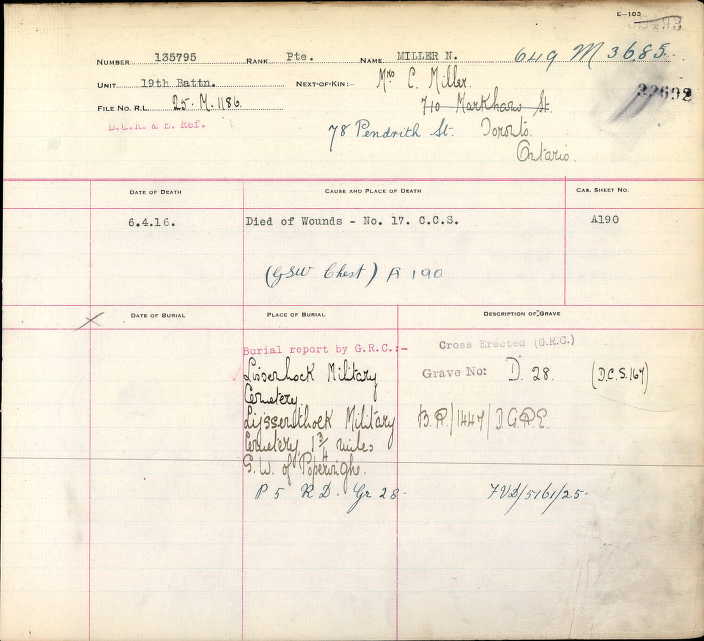 E—103
NUMBER 135795 RANK Pte. NAME MILLER N. 649 M 3685.
UNIT 19th Battn. NEXT-OF-KIN:- Mrs C. Miller.
FILE NO. R.L. 25. M. 1186. 710 Markham St. 22692
78 Pendrith St. Toronto.
Ontario.
DATE OF DEATH CAUSE AND PLACE OF DEATH CAS. SHEET NO.
6.4.16. Died of Wounds - No. 17. C.C.S. A190
(GSW Chest) A 190
DATE OF BURIAL PLACE OF BURIAL DESCRIPTION OF GRAVE
Burial report by G.R.C.:- Cross Erected (G.R.C.)
Lisserhock Military Grave No: D. 28. (D.C.S.167)
Cemetery
Lijssenthoek Military B.R./1447/D.G.R.E.
Cemetery 1 3/4 miles
S.W. of Poperinghe.
P 5 R D. Gr 28- 7VD/5161/25-